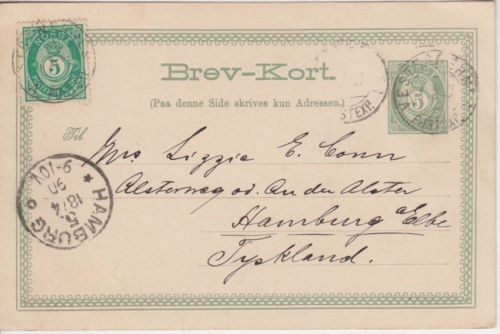 NORGE
5
POSTFRIM.
Brev-Kort.
(Paa denne Side skrives kun Adressen.)
5
Til
Mrs Lizzie E. Conn
Alsterweg od. An der Alster
Hamburg a/Elbe
Tyskland.
HAMBURG
5
18/4
90
9-10V